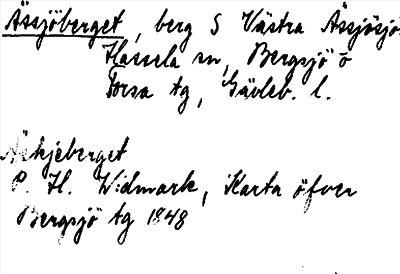 Ässjöberget, berg S Västra Ässjösjö
Hassela sn, Bergsjö o
Forsa tg, Gävleb. l.
Äshjeberget
P. H. Widmark, Karta öfver
Bergsjö tg 1848